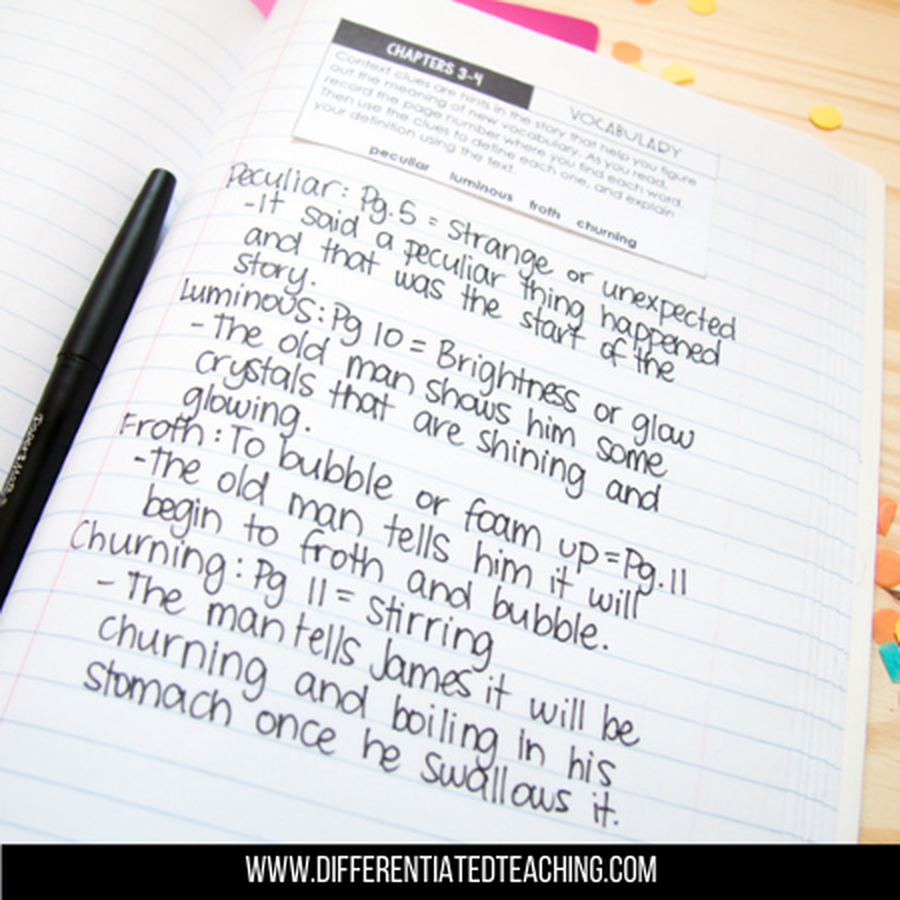 CHAPTERS 3-4
VOCABULARY
Context clues are hints in the story that help you figure
out the meaning of new vocabulary. As you read,
record the page number where you find each word.
Then use the clues to define each one, and explain
your definition using the text.
peculiar luminous froth churning
Peculiar: Pg. 5 = Strange or unexpected
-It said a peculiar thing happened
and that was the start of the
story.
Luminous: Pg 10 = Brightness or glow
- The old man shows him some
crystals that are shining and
glowing.
Froth: To bubble or foam up = Pg. 11
-The old man tells him it will
begin to froth and bubble.
Churning: Pg 11 = Stirring
- The man tells James it will be
churning and boiling in his
stomach once he swallows it.
WWW.DIFFERENTIATEDTEACHING.COM